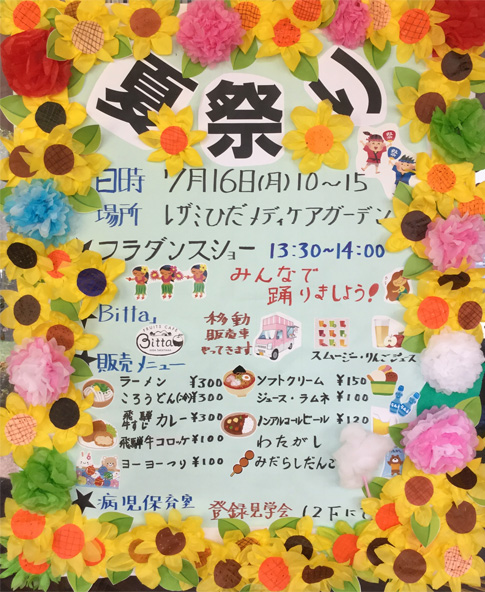 夏祭り
日時 7月16日(月)10〜15
場所 レガミひだメディケアガーデン
フラダンスショー 13:30〜14:00
みんなで
踊りましょう!
★Bitta」
移動
販売車
やってきます
FRUITS CAFE
Bitta
スムージー・りんごジュース
★販売メニュー
ラーメン ¥300
ソフトクリーム ¥150
ころうどん(冷)¥300
ジュース・ラムネ ¥100
飛騨牛すじカレー ¥300
ノンアルコールビール ¥120
飛騨牛コロッケ ¥100
わたがし
ヨーヨーつり ¥100
みだらしだんご
★病児保育室 登録見学会 12Fにて